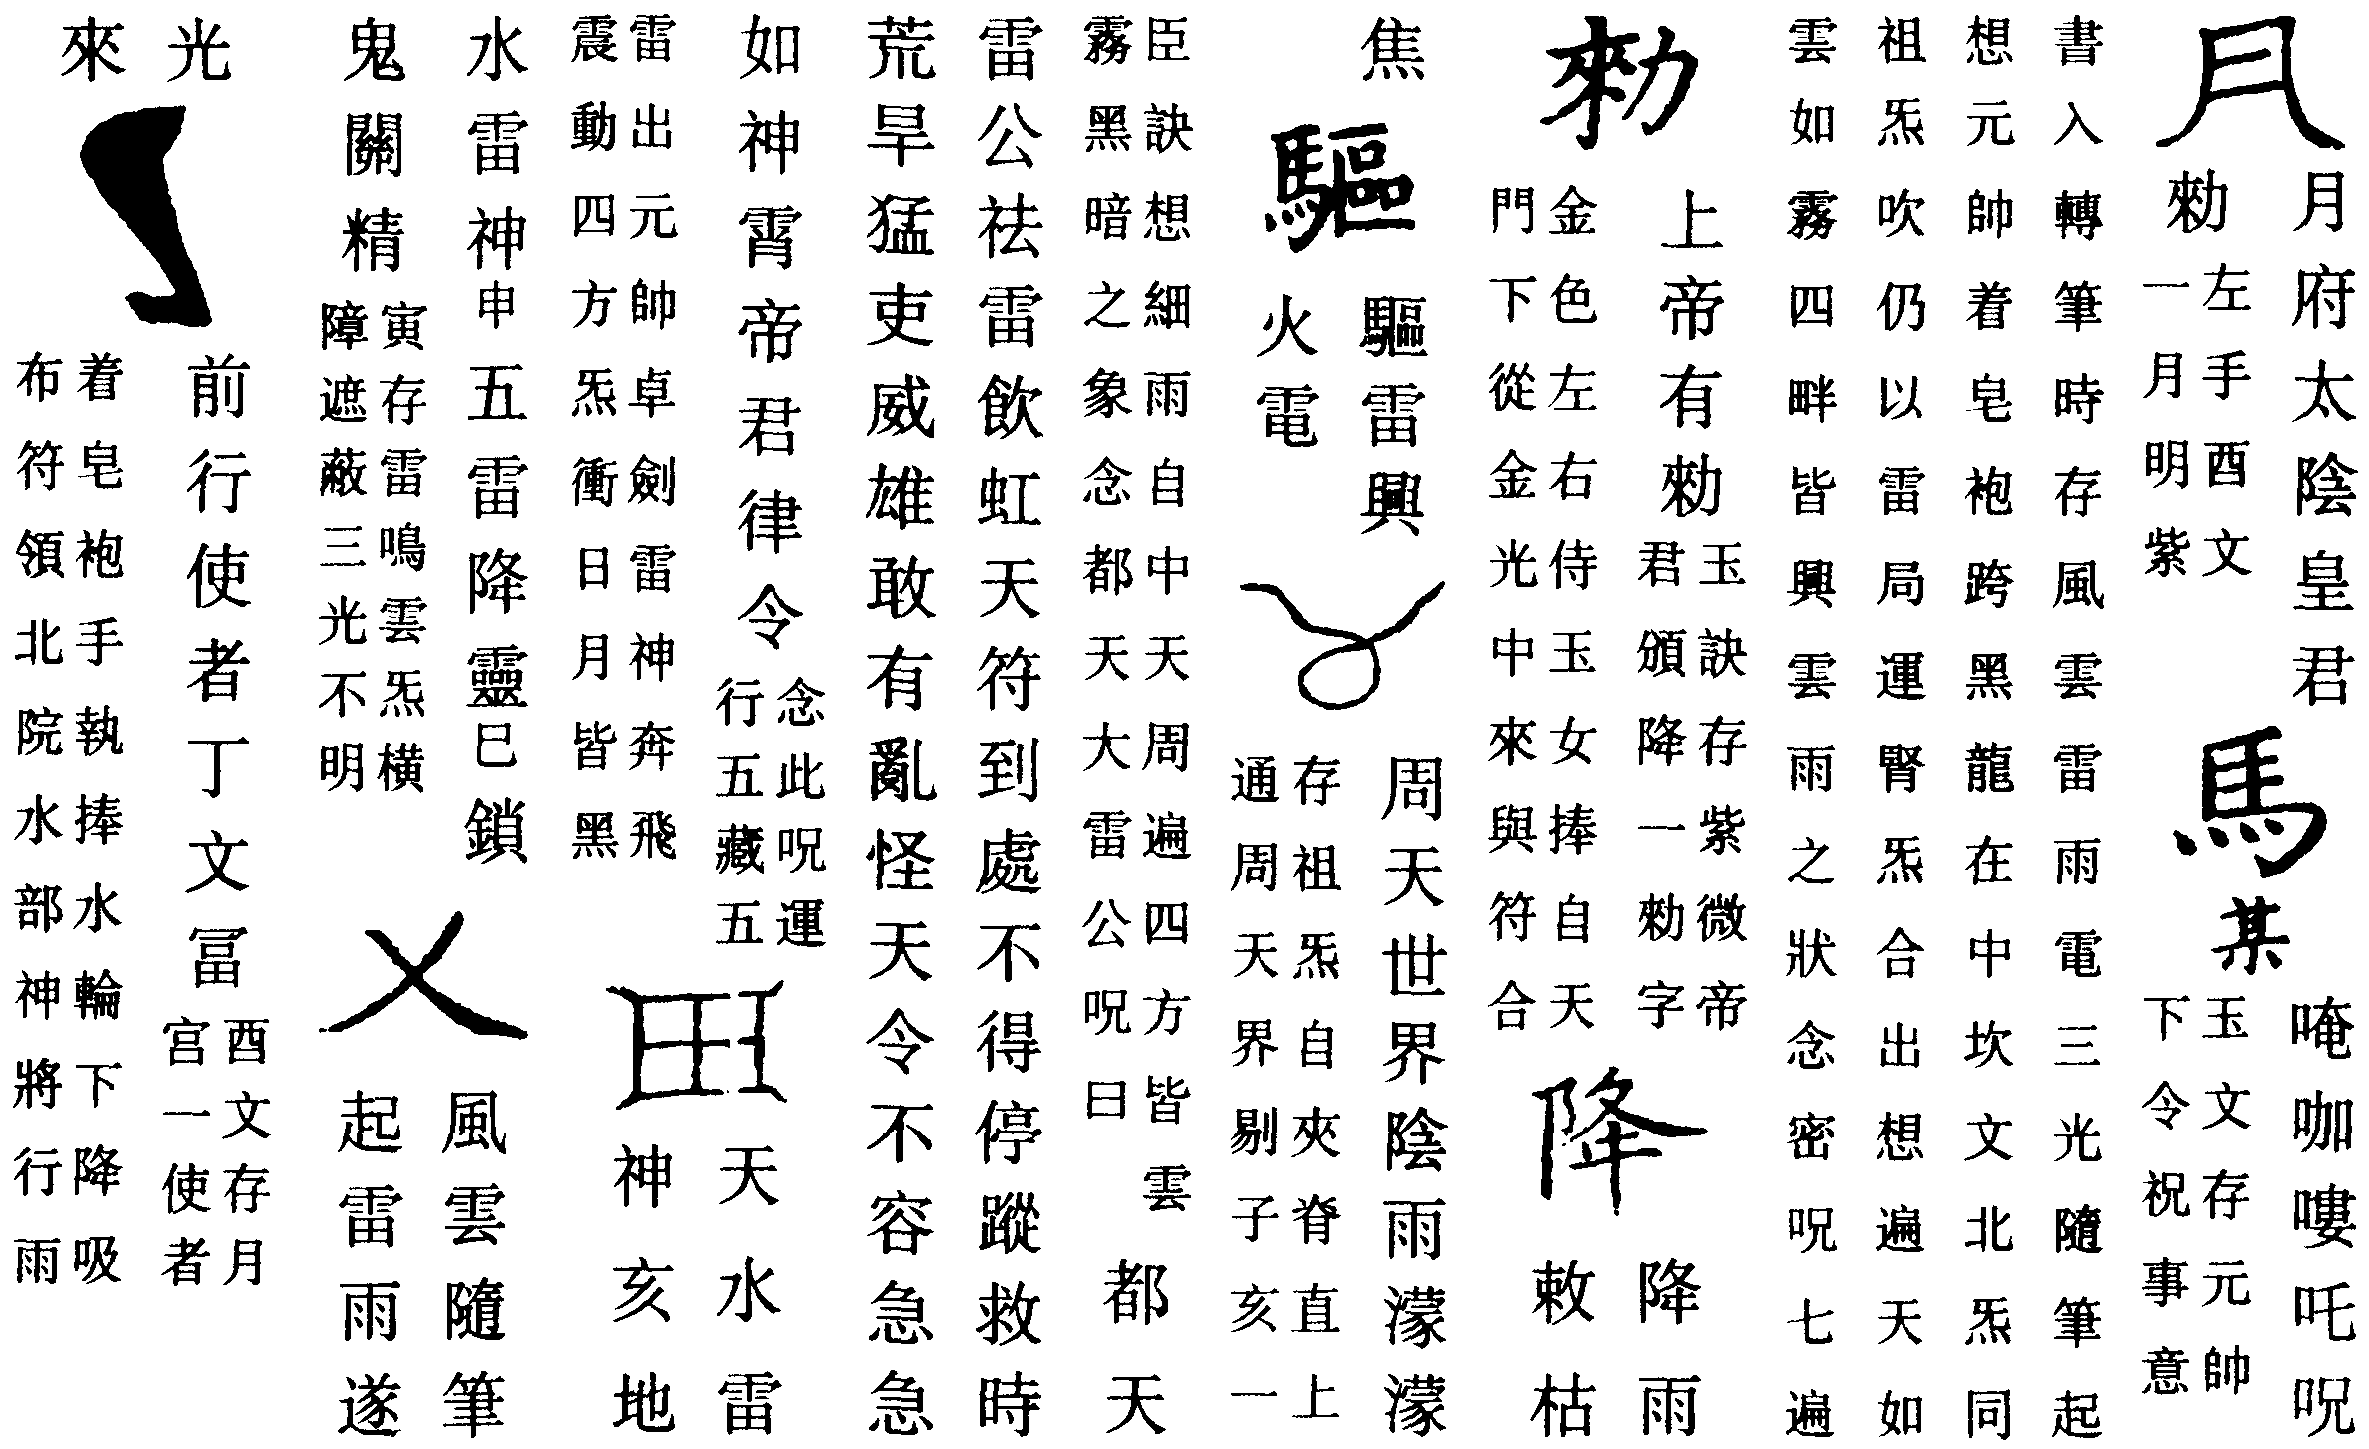 月府太陰皇君
勑
左手酉文
一月明紫
馬
某
唵咖嘍吒呪
玉文存元帥
下令祝事意
書入轉筆時存風雲雷雨電三光隨筆起
想元帥着皂袍跨黑龍在中坎文北炁同
祖炁吹仍以雷局運腎炁合出想遍天如
雲如霧四畔皆興雲雨之狀念密呪七遍
勑
上帝有勑
玉訣存紫微帝
君頒降一勑字
金色左右侍玉女捧自天
門下從金光中來與符合
降
降雨
敕枯
焦
驅
驅雷興
火電
周天世界陰雨濛濛
存祖炁自夾脊直上
通周天界剔子亥一
臣訣想細雨自中天周遍四方皆雲
霧黑暗之象念都天大雷公呪曰
都天
雷公祛雷飲虹天符到處不得停蹤救時
荒旱猛吏威雄敢有亂怪天令不容急急
如神霄帝君律令
念此呪運
行五藏五
雷出元帥卓劍雷神奔飛
震動四方炁衝日月皆黑
天水雷
神亥地
水雷神申五雷降靈巳鎖
鬼關精
寅存雷鳴雲炁橫
障遮蔽三光不明
風雲隨筆
起雷雨遂
光
來
前行使者丁文冨
酉文存月
宫一使者
着皂袍手執捧水輪下降吸
布符領北院水部神將行雨